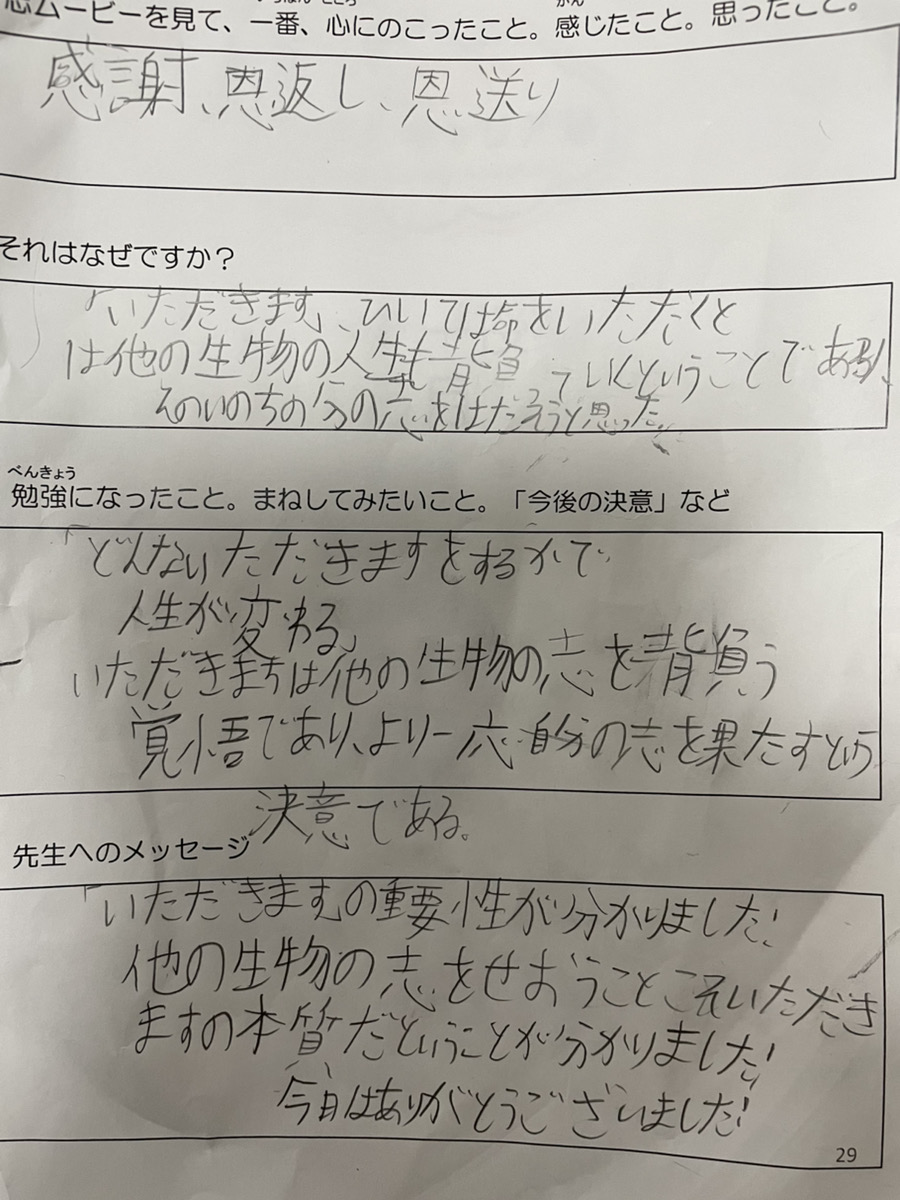 志ムービーを見て、一番、心にのこったこと。感じたこと。思ったこと。
感謝、恩返し、恩送り
それはなぜですか？
「いただきます」、ひいては命をいただくと
は他の生物の人生も背負っていくということであり、
そのいのちの分の志をはたそうと思った。
べんきょう
勉強になったこと。まねしてみたいこと。「今後の決意」など
「どんないただきますをするかで
人生が変わる」
いただきますは他の生物の志を背負う
覚悟であり、より一応自分の志を果たすという
決意である。
先生へのメッセージ
「いただきます」の重要性が分かりました!
他の生物の志をせおうことこそいただき
ますの本質だということが分かりました!
今日はありがとうございました!
29